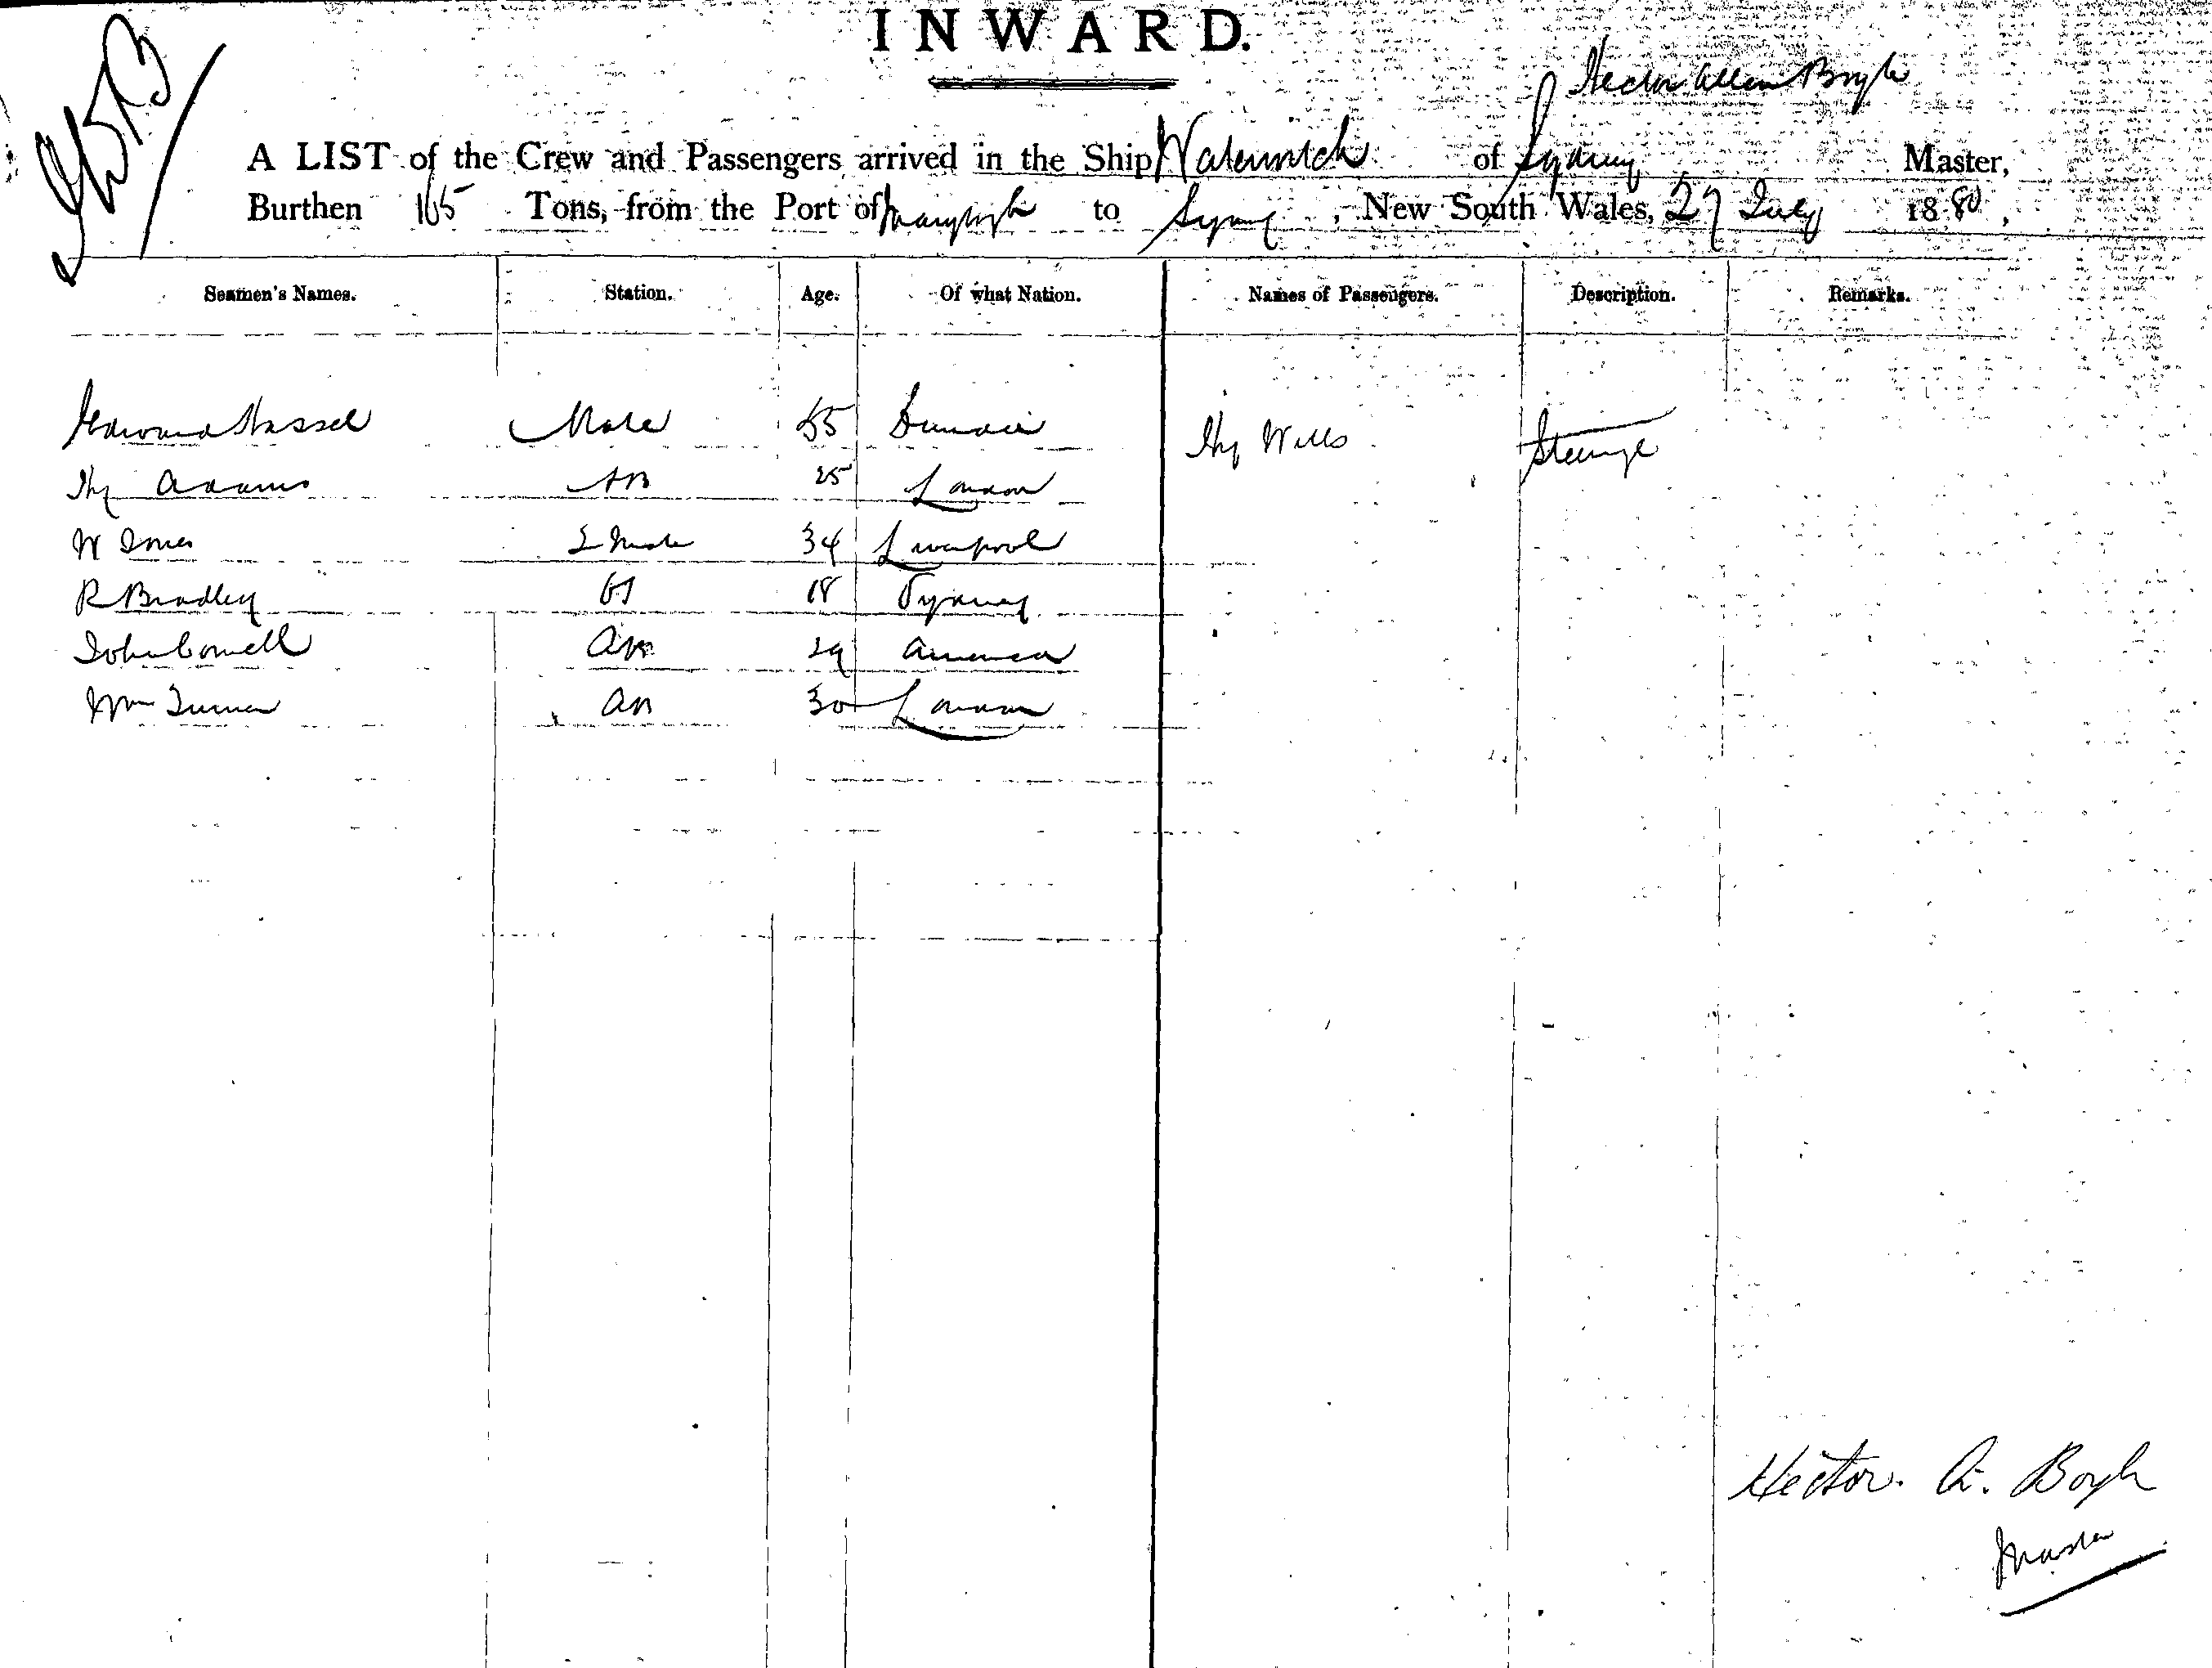 INWARD.
Hector Allen Boyle
A LIST of the Crew and Passengers arrived in the Ship Waterwitch of Sydney Master,
Burthen 165 Tons, from the Port of to Sydney, New South Wales, 27 July 1880,
Seamen's Names. Station. Age. Of what Nation. Names of Passengers. Description. Remarks.
Edward Hassel Mate 55 Dundee Hy Wills Steerage
Hy Adams AB 25 London
W Jones 2 Mate 34 Liverpool
R Bradley OS 18 Sydney
John AB 29 America
Wm Turner AB 30 London
Hector. A. Boyle
Master